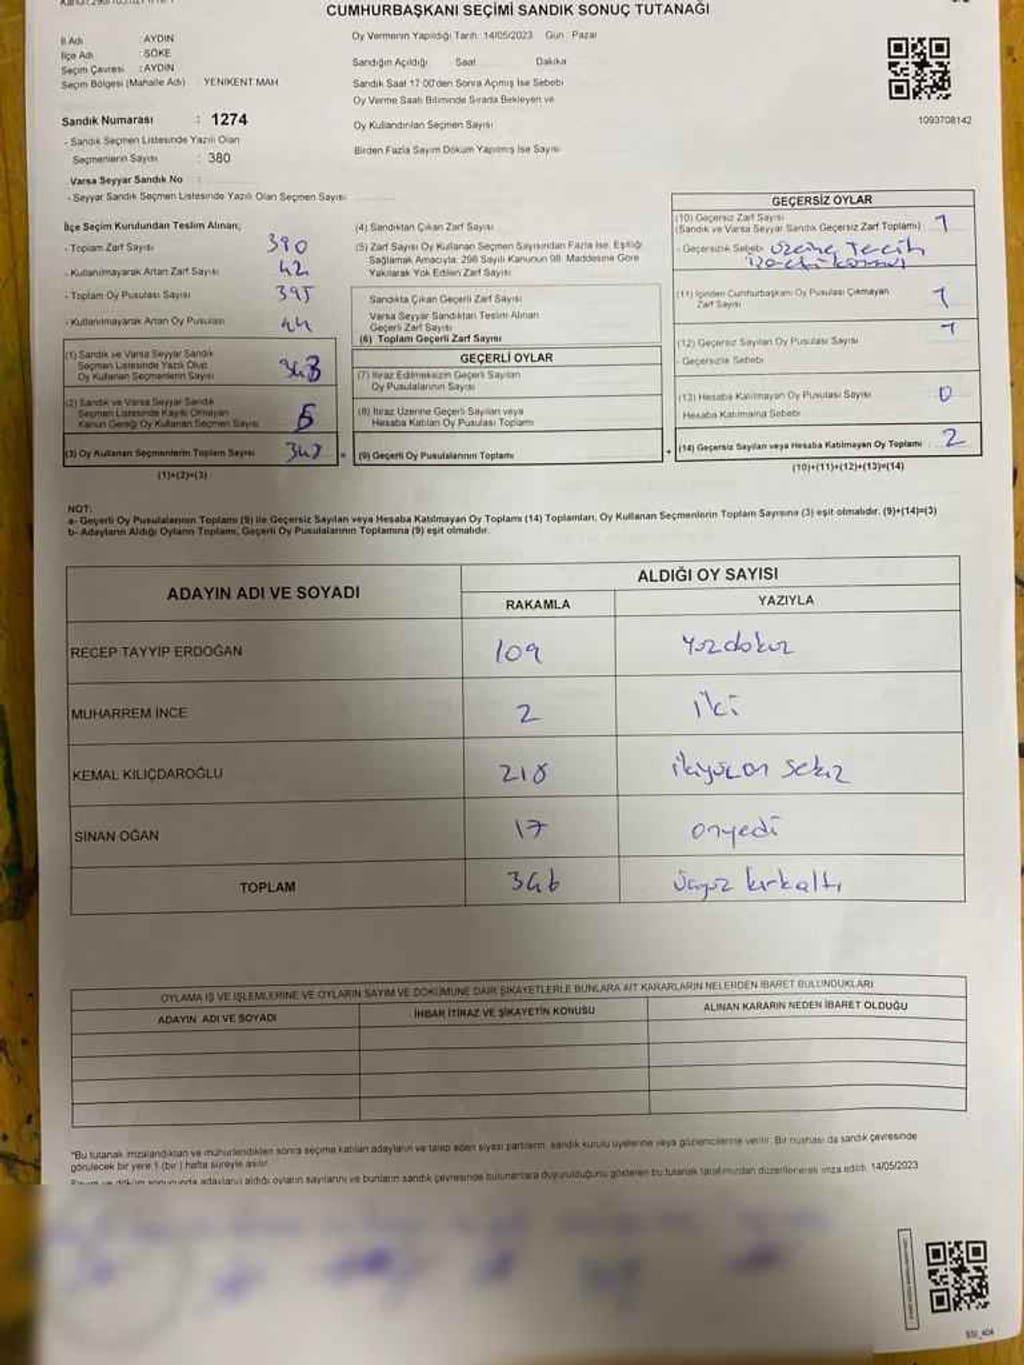 CUMHURBAŞKANI SEÇİMİ SANDIK SONUÇ TUTANAĞI
İl Adı : AYDIN
İlçe Adı : SÖKE
Seçim Çevresi : AYDIN
Seçim Bölgesi (Mahalle Adı) YENİKENT MAH
Sandık Numarası : 1274
- Sandık Seçmen Listesinde Yazılı Olan
Seçmenlerin Sayısı : 380
Varsa Seyyar Sandık No :
- Seyyar Sandık Seçmen Listesinde Yazılı Olan Seçmen Sayısı
Oy Vermenin Yapıldığı Tarih: 14/05/2023 Gün : Pazar
Sandığın Açıldığı Saat Dakika
Sandık Saat 17:00'den Sonra Açılmış İse Sebebi
Oy Verme Saati Bitiminde Sırada Bekleyen ve
Oy Kullandırılan Seçmen Sayısı
Birden Fazla Sayım Döküm Yapılmış İse Sayısı
1093708142
İlçe Seçim Kurulundan Teslim Alınan;
- Toplam Zarf Sayısı 390
- Kullanılmayarak Artan Zarf Sayısı 42
- Toplam Oy Pusulası Sayısı 395
- Kullanılmayarak Artan Oy Pusulası 44
(1) Sandık ve Varsa Seyyar Sandık
Seçmen Listesinde Yazılı Olup
Oy Kullanan Seçmenlerin Sayısı 343
(2) Sandık ve Varsa Seyyar Sandık
Seçmen Listesinde Kayıtlı Olmayan
Kanun Gereği Oy Kullanan Seçmen Sayısı 5
(3) Oy Kullanan Seçmenlerin Toplam Sayısı 348
(1)+(2)=(3)
(4) Sandıktan Çıkan Zarf Sayısı
(5) Zarf Sayısı Oy Kullanan Seçmen Sayısından Fazla İse, Eşitliği
Sağlamak Amacıyla; 298 Sayılı Kanunun 98. Maddesine Göre
Yakılarak Yok Edilen Zarf Sayısı
Sandıkta Çıkan Geçerli Zarf Sayısı
Varsa Seyyar Sandıktan Teslim Alınan
Geçerli Zarf Sayısı
(6) Toplam Geçerli Zarf Sayısı
GEÇERLİ OYLAR
(7) İtiraz Edilmeksizin Geçerli Sayılan
Oy Pusulalarının Sayısı
(8) İtiraz Üzerine Geçerli Sayılan veya
Hesaba Katılan Oy Pusulası Toplamı
= (9) Geçerli Oy Pusulalarının Toplamı +
GEÇERSİZ OYLAR
(10) Geçersiz Zarf Sayısı
(Sandık ve Varsa Seyyar Sandık Geçersiz Zarf Toplamı) 1
- Geçersizlik Sebebi üzerine Tercih
(11) İçinden Cumhurbaşkanı Oy Pusulası Çıkmayan
Zarf Sayısı 1
1
(12) Geçersiz Sayılan Oy Pusulası Sayısı
- Geçersizlik Sebebi
(13) Hesaba Katılmayan Oy Pusulası Sayısı 0
Hesaba Katılmama Sebebi
(14) Geçersiz Sayılan veya Hesaba Katılmayan Oy Toplamı 2
(10)+(11)+(12)+(13)=(14)
NOT:
a- Geçerli Oy Pusulalarının Toplamı (9) ile Geçersiz Sayılan veya Hesaba Katılmayan Oy Toplamı (14) Toplamları, Oy Kullanan Seçmenlerin Toplam Sayısına (3) eşit olmalıdır. (9)+(14)=(3)
b- Adayların Aldığı Oyların Toplamı, Geçerli Oy Pusulalarının Toplamına (9) eşit olmalıdır.
ADAYIN ADI VE SOYADI ALDIĞI OY SAYISI
RAKAMLA YAZIYLA
RECEP TAYYİP ERDOĞAN 109 yüzdokuz
MUHARREM İNCE 2 iki
KEMAL KILIÇDAROĞLU 218 ikiyüzon sekiz
SİNAN OĞAN 17 onyedi
TOPLAM 346 üçyüz kırkaltı
OYLAMA İŞ VE İŞLEMLERİNE VE OYLARIN SAYIM VE DÖKÜMÜNE DAİR ŞİKAYETLERLE BUNLARA AİT KARARLARIN NELERDEN İBARET BULUNDUKLARI
ADAYIN ADI VE SOYADI İHBAR İTİRAZ VE ŞİKAYETİN KONUSU ALINAN KARARIN NEDEN İBARET OLDUĞU
*Bu tutanak imzalandıktan ve mühürlendikten sonra seçime katılan adayların ve talep eden siyasi partilerin, sandık kurulu üyelerine veya gözlemcilerine verilir. Bir nüshası da sandık çevresinde
görülecek bir yere 1 (bir) hafta süreyle asılır.
Sayım ve döküm sonucunda adayların aldığı oyların sayılarını ve bunların sandık çevresinde bulunanlara duyurulduğunu gösteren bu tutanak tarafımızdan düzenlenerek imza edildi. 14/05/2023